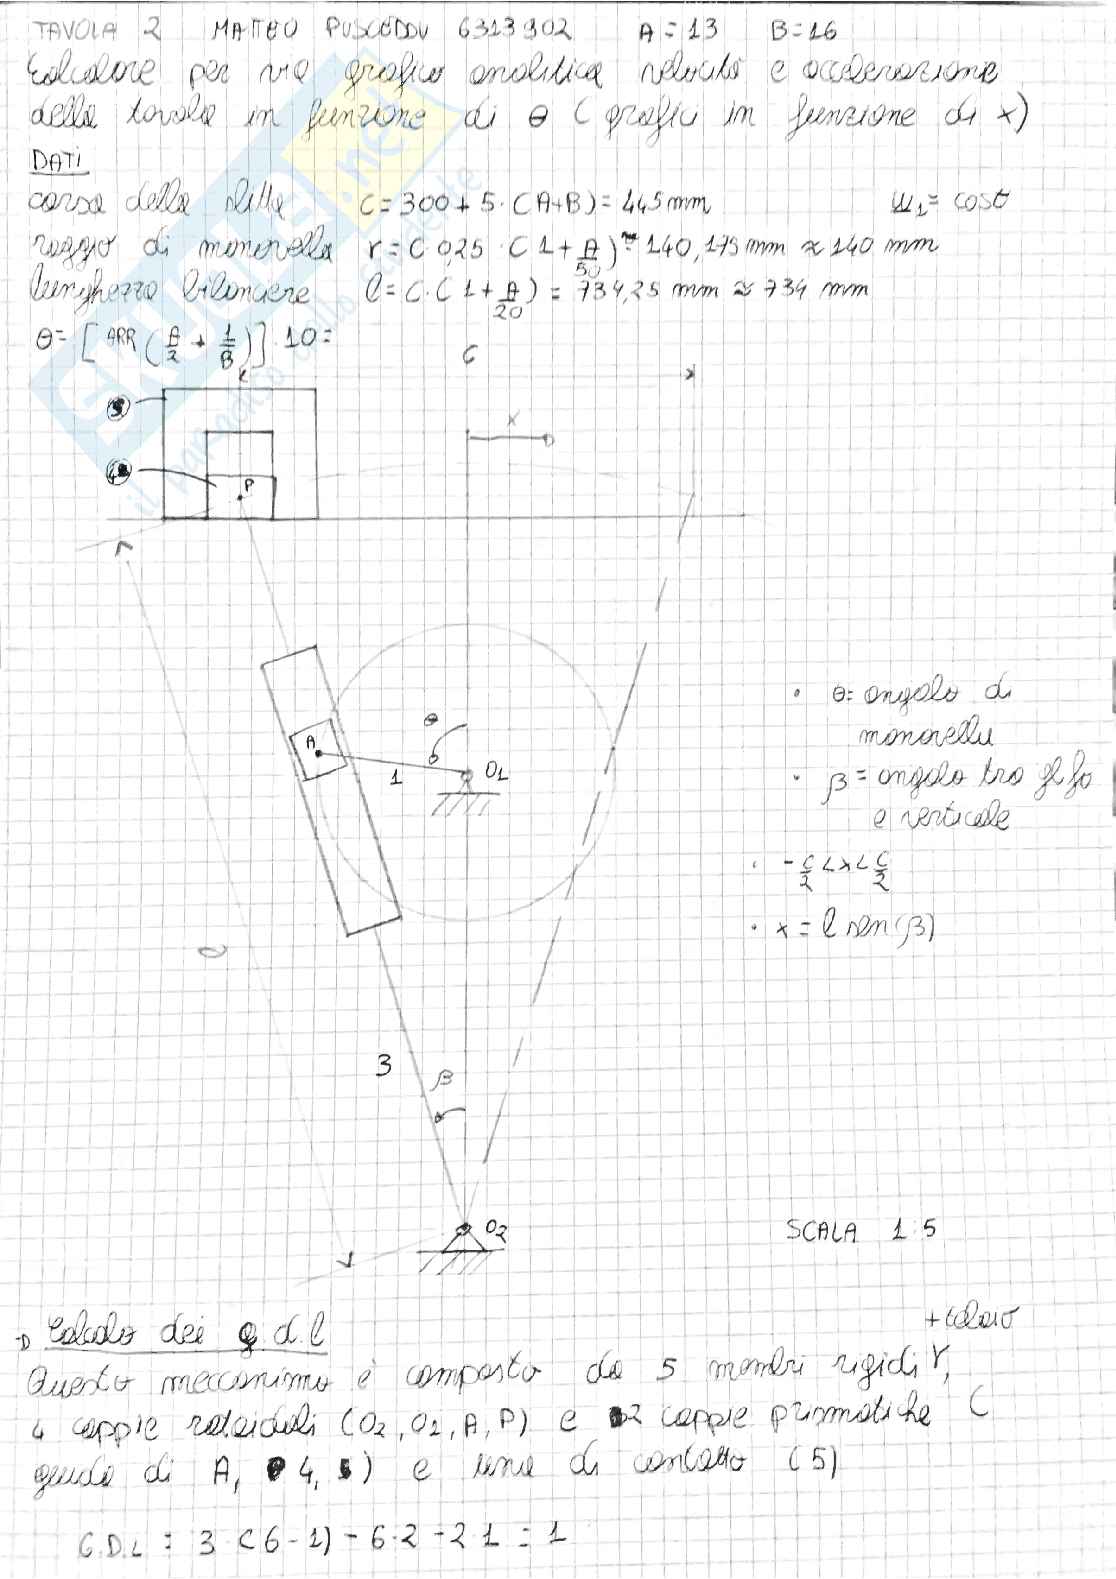 TAVOLA 2 MATTEO PUSCEDDU 6313902 A=13 B=16
Calcolare per via grafico analitica velocità e accelerazione
della tavola in funzione di θ (grafici in funzione di x)
DATI
corsa della slitta C=300+5·(A+B)=445mm ω1=cost
raggio di manovella r=C 025 (1+A/50)=140,175 mm ≈ 140 mm
lunghezza bilanciere l=C·(1+A/20)=734,25 mm ≈ 734 mm
θ=[ARR(A/2+1/B)] 10=
C
x
5
4
P
A
θ
1
O1
• θ=angolo di
manovella
• β=angolo tra glifo
e verticale
• -C/2<x<C/2
• x=l sen(β)
l
3
β
O2
SCALA 1:5
Calcolo dei g.d.l
+telaio
Questo meccanismo è composto da 5 membri rigidi,
4 coppie rotoidali (O2,O1,A,P) e 2 coppie prismatiche (
guida di A, 4, 5) e una di contatto (5)
G.D.L = 3·(6-1)-6·2-2·1=1
SKUOLA.net
il paradiso dello studente